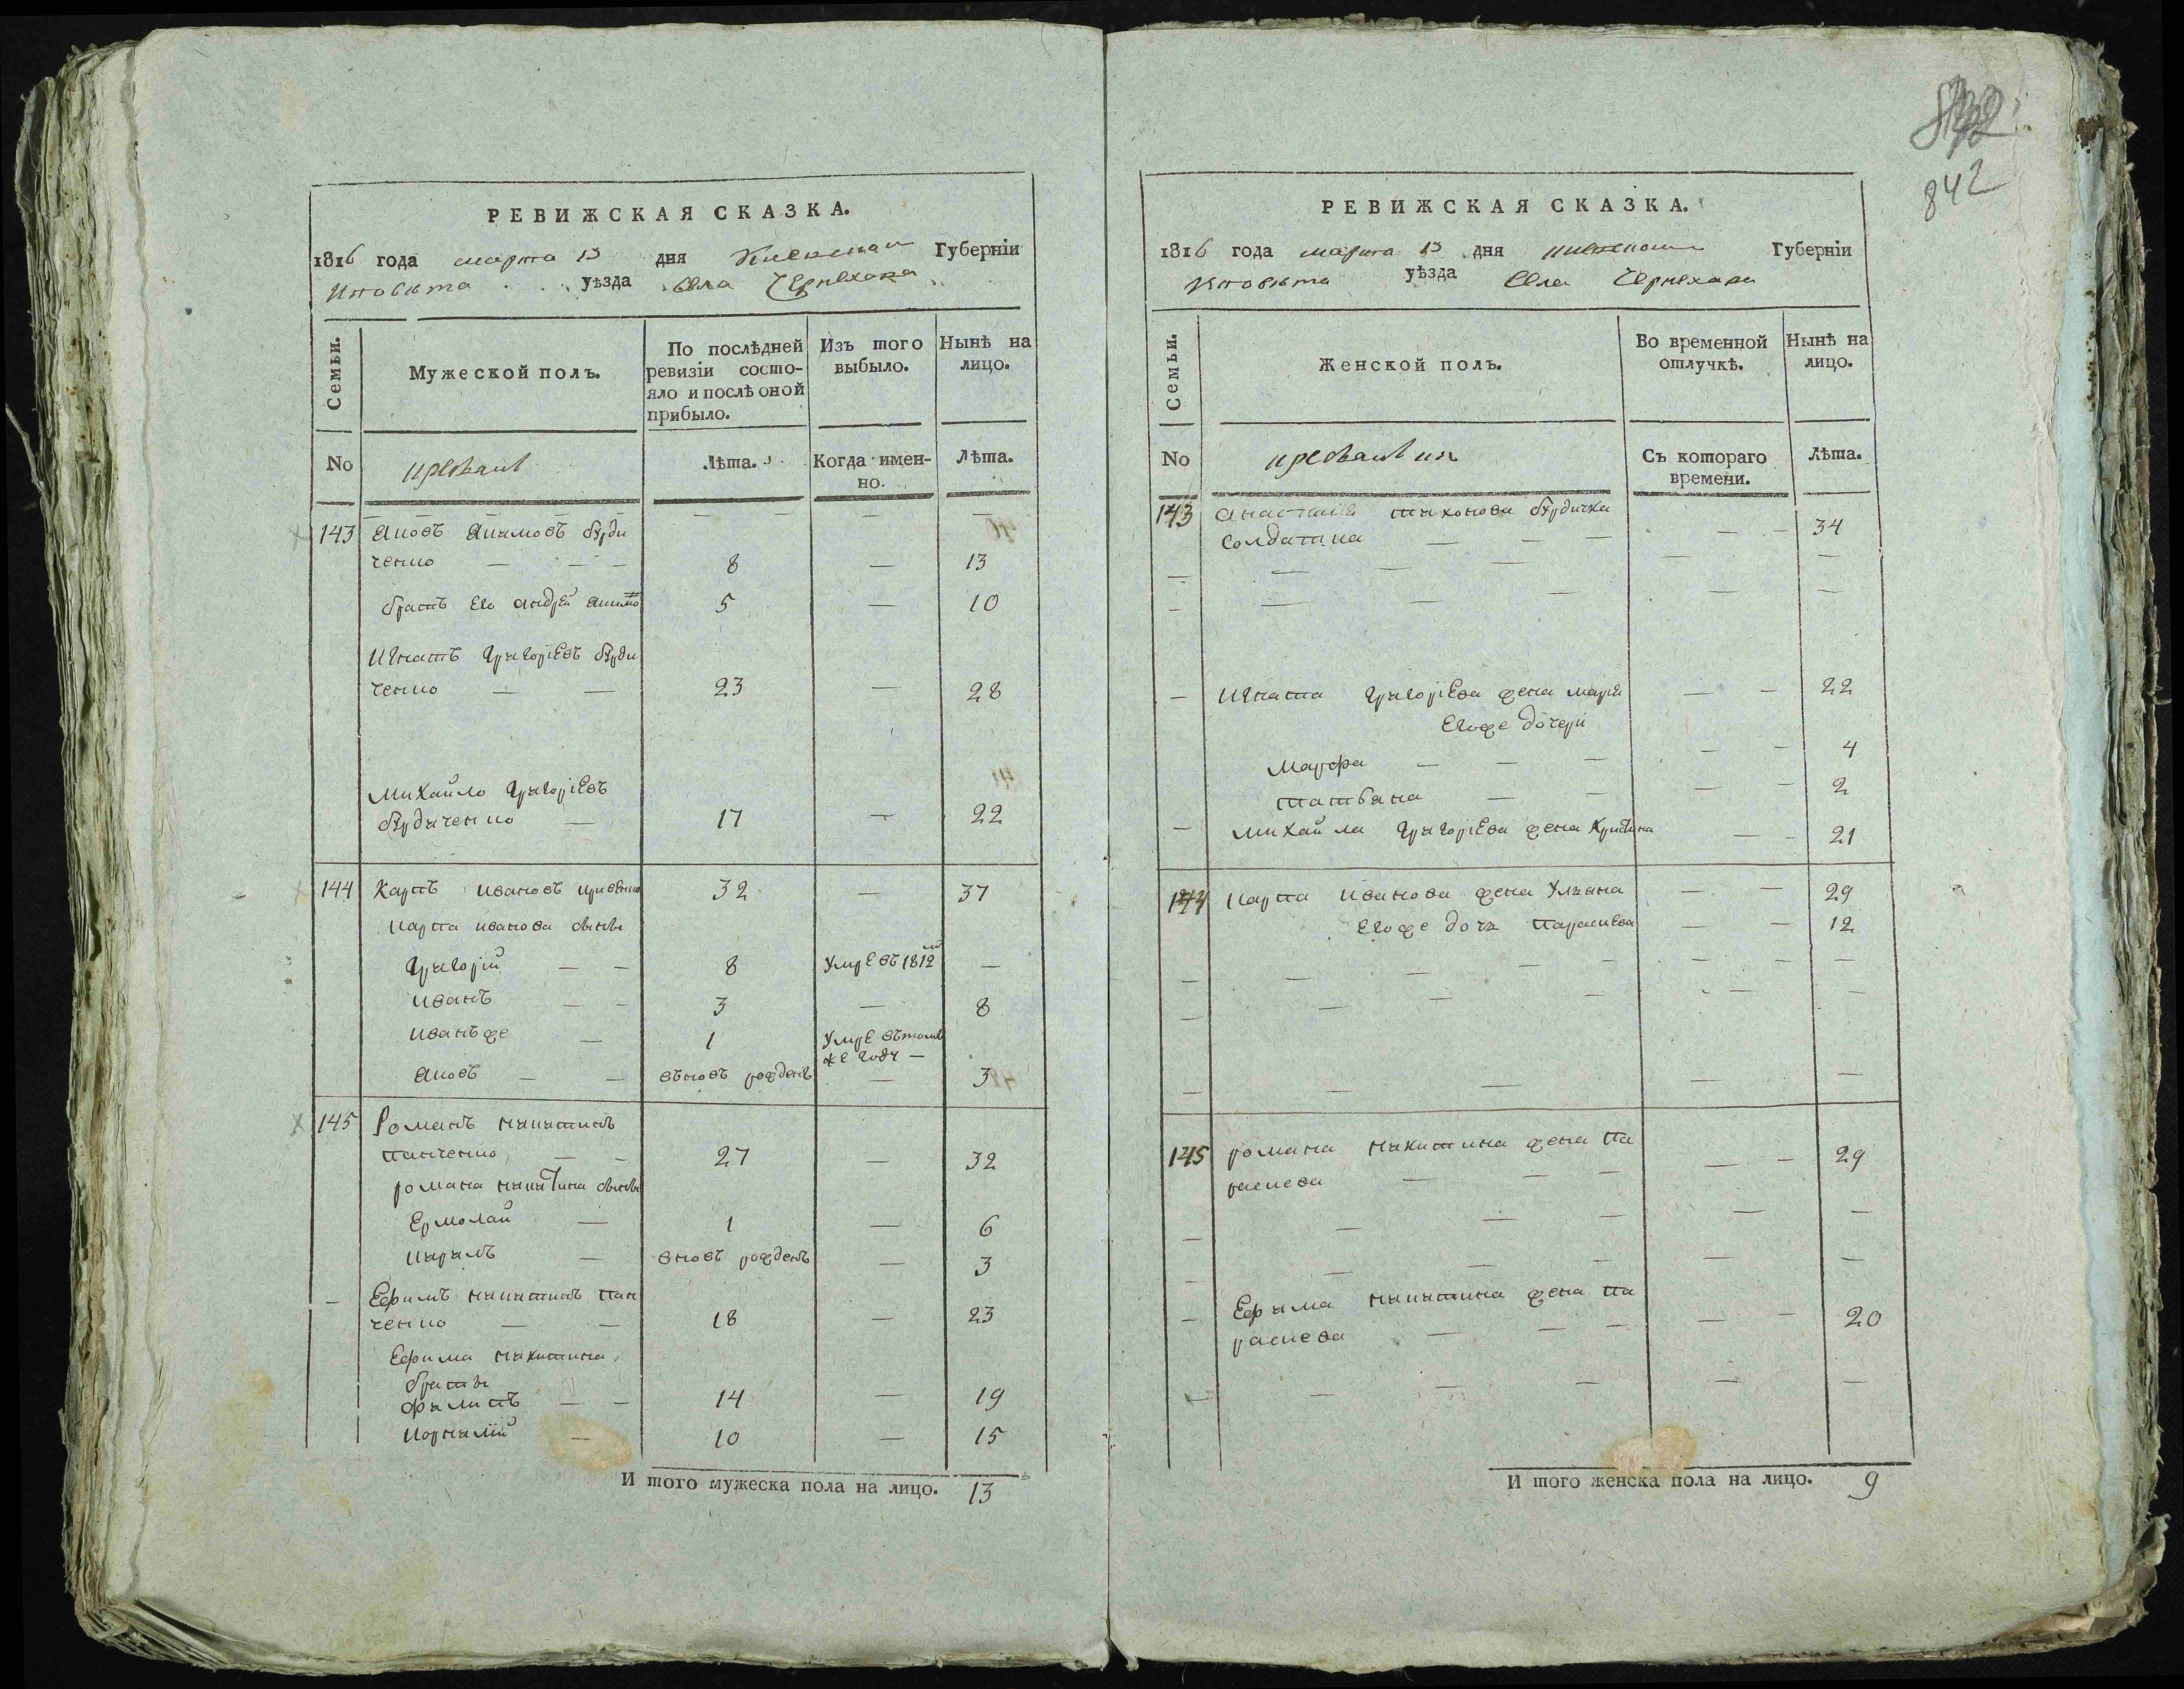 РЕВИЖСКАЯ СКАЗКА.
1816 года марта 13 дня Киевской Губерніи
уѣзда Села Чернехова
Семьи.
Мужеской полъ.
По послѣдней ревизіи состо-
яло и послѣ оной
прибыло.
Изъ того
выбыло.
Нынѣ на
лицо.
No
Лѣта.
Когда имен-
но.
Лѣта.
143 Яковъ Якимовъ
ченко — — — 8 — 13
братъ его андрей 5 — 10
Игнатъ Григорієвъ
ченко — — 23 — 28
Михайло Григорієвъ
17 — 22
144 Карпъ ивановъ 32 — 37
карпа иванова сыны
Григорій — — 8 Умре въ 1812м —
иванъ — — 3 — 8
иванъ же — 1 Умре въ томъ
же году —
Яковъ — — вновъ рожденъ — 3
145 Романъ никитинъ
панченко — — 27 — 32
романа никитина сыны
Ермолай — 1 — 6
вновъ рожденъ — 3
— Ефимъ никитинъ пан
ченко — — 18 — 23
Ефима никитина
браты
Филипъ — — 14 — 19
корнилій — 10 — 15
И того мужеска пола на лицо. 13
842
РЕВИЖСКАЯ СКАЗКА.
1816 года марта 13 дня киевской Губерніи
уѣзда Села Чернехова
Семьи.
Женской полъ.
Во временной
отлучкѣ.
Нынѣ на
лицо.
No
Съ котораго
времени.
Лѣта.
143 анастасія тихонова
Солдатка — — — — — 34
— Игната Григорієва жена марія — — 22
Егоже дочери
Марфа — — — — — 4
татьяна — — — — 2
— михайла Григорієва жена Кристина — — 21
144 карпа иванова жена Уляна — — 29
Егоже дочь параскева — — 12
145 романа никитина жена па
раскева — — — — — 29
— Ефима никитина жена па
раскева — — — — — 20
И того женска пола на лицо. 9